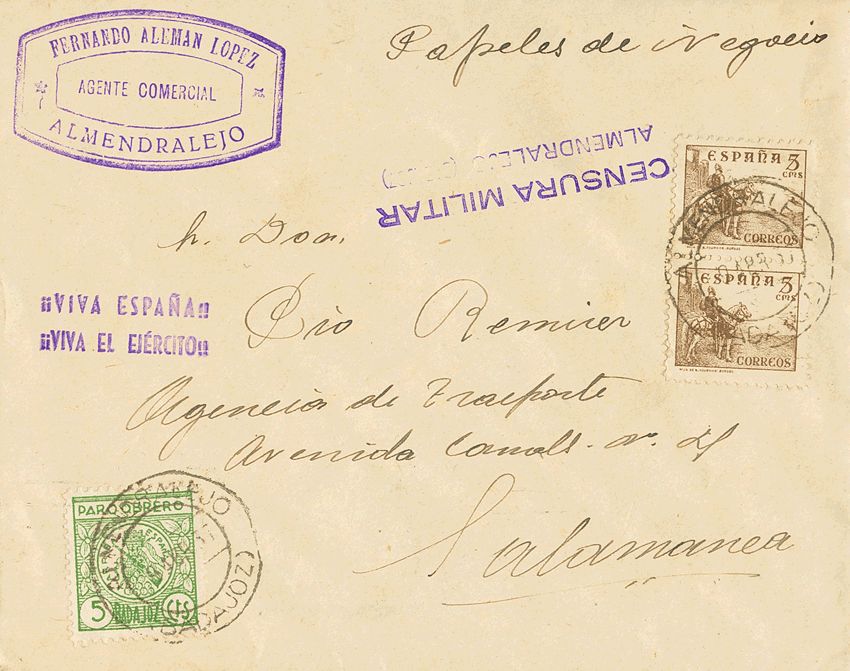 FERNANDO ALEMAN LOPEZ
AGENTE COMERCIAL
ALMENDRALEJO
Papeles de Negocio
CENSURA MILITAR
ALMENDRALEJO
ESPAÑA 5
CTMS
CORREOS
ESPAÑA 5
CTMS
CORREOS
ALMENDRALEJO
(BADAJOZ)
¡¡VIVA ESPAÑA!!
¡¡VIVA EL EJÉRCITO!!
Don
Pio Remirer
Agencia de Trasporte
Avenida
Salamanca
PARO OBRERO
ESPAÑA
5 BADAJOZ Cts
ALMENDRALEJO
(BADAJOZ)